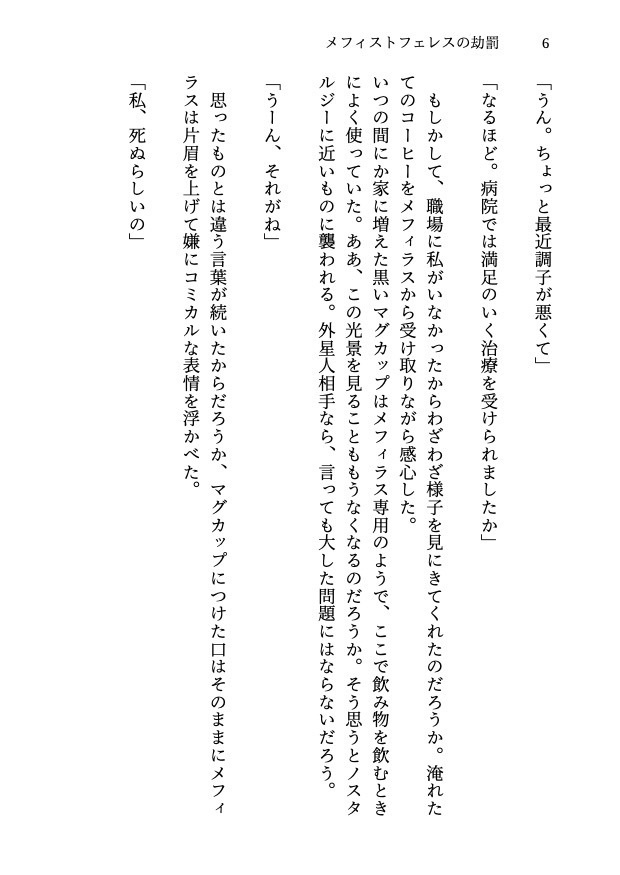 メフィストフェレスの劫罰 6
「うん。ちょっと最近調子が悪くて」
「なるほど。病院では満足のいく治療を受けられましたか」
もしかして、職場に私がいなかったからわざわざ様子を見にきてくれたのだろうか。淹れた
てのコーヒーをメフィラスから受け取りながら感心した。
いつの間にか家に増えた黒いマグカップはメフィラス専用のようで、ここで飲み物を飲むとき
によく使っていた。ああ、この光景を見ることももうなくなるのだろうか。そう思うとノスタ
ルジーに近いものに襲われる。外星人相手なら、言っても大した問題にはならないだろう。
「うーん、それがね」
思ったものとは違う言葉が続いたからだろうか、マグカップにつけた口はそのままにメフィ
ラスは片眉を上げて嫌にコミカルな表情を浮かべた。
「私、死ぬらしいの」